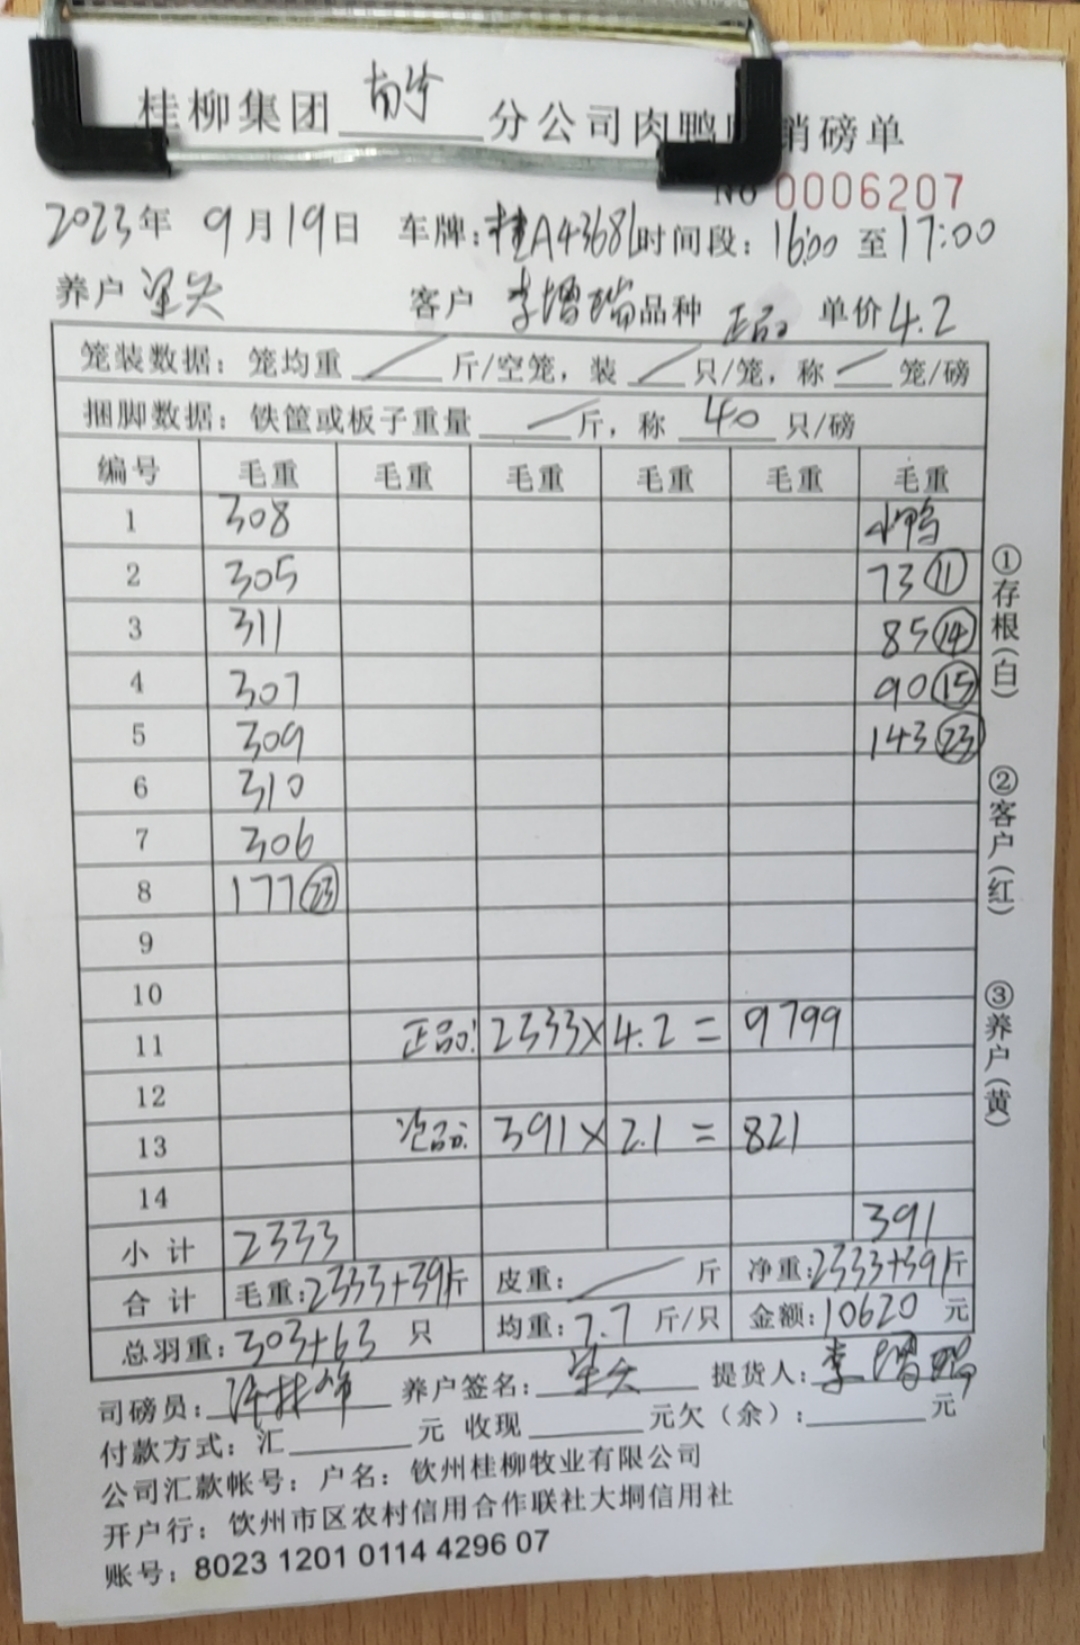 桂柳集团 南宁 分公司肉鸭 销磅单
No 0006207
2023年 9月19日 车牌:桂A4368L 时间段: 16:00 至 17:00
养户 梁尖 客户 李增瑞 品种 正品 单价 4.2
笼装数据: 笼均重 / 斤/空笼, 装 / 只/笼, 称 / 笼/磅
捆脚数据: 铁筐或板子重量 / 斤, 称 40 只/磅
编号 毛重 毛重 毛重 毛重 毛重 毛重
1 308 小鸭
2 305 73 ⑪
3 311 85 ⑭
4 307 90 ⑮
5 309 143 ㉓
6 310
7 306
8 177 ㉓
9
10
11 正品: 2333 × 4.2 = 9799
12
13 次品: 391 × 2.1 = 821
14
小计 2333 391
合计 毛重:2333+391斤 皮重: / 斤 净重:2333+391斤
总羽重:303+63 只 均重:7.7 斤/只 金额:10620 元
司磅员: 养户签名: 梁尖 提货人: 李增瑞
付款方式: 汇 元 收现 元欠(余): 元
公司汇款帐号: 户名: 钦州桂柳牧业有限公司
开户行: 钦州市区农村信用合作联社大垌信用社
账号: 8023 1201 0114 4296 07
①存根(白)
②客户(红)
③养户(黄)